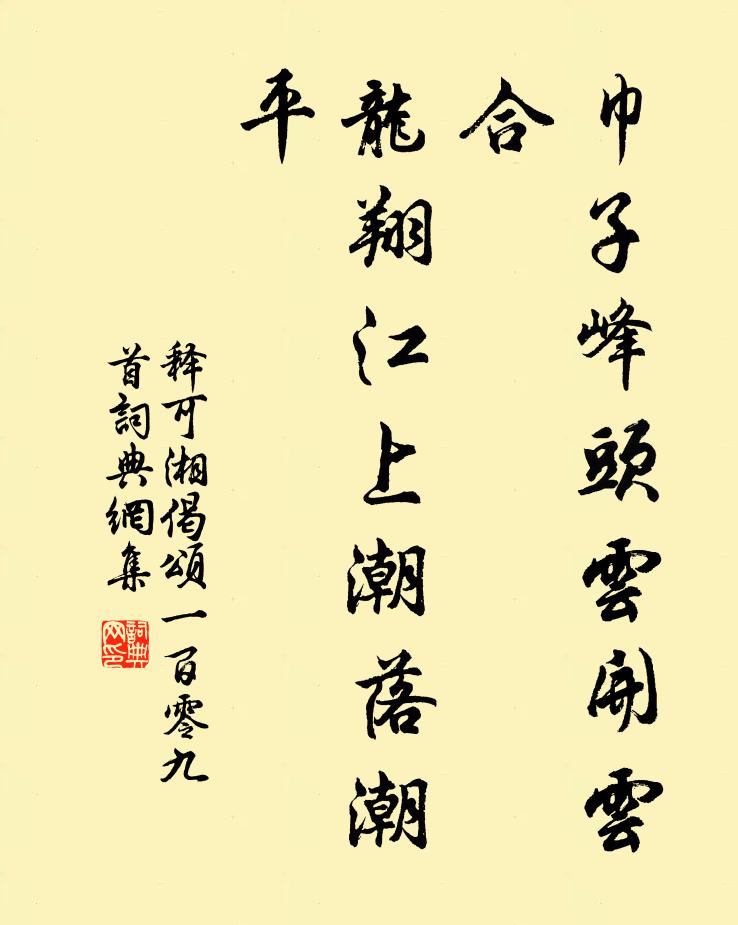 巾子峰頭雲開雲
合
龍翔江上潮落潮
平
释可湘偈頌一百零九
首詞典網集
詞典
网印